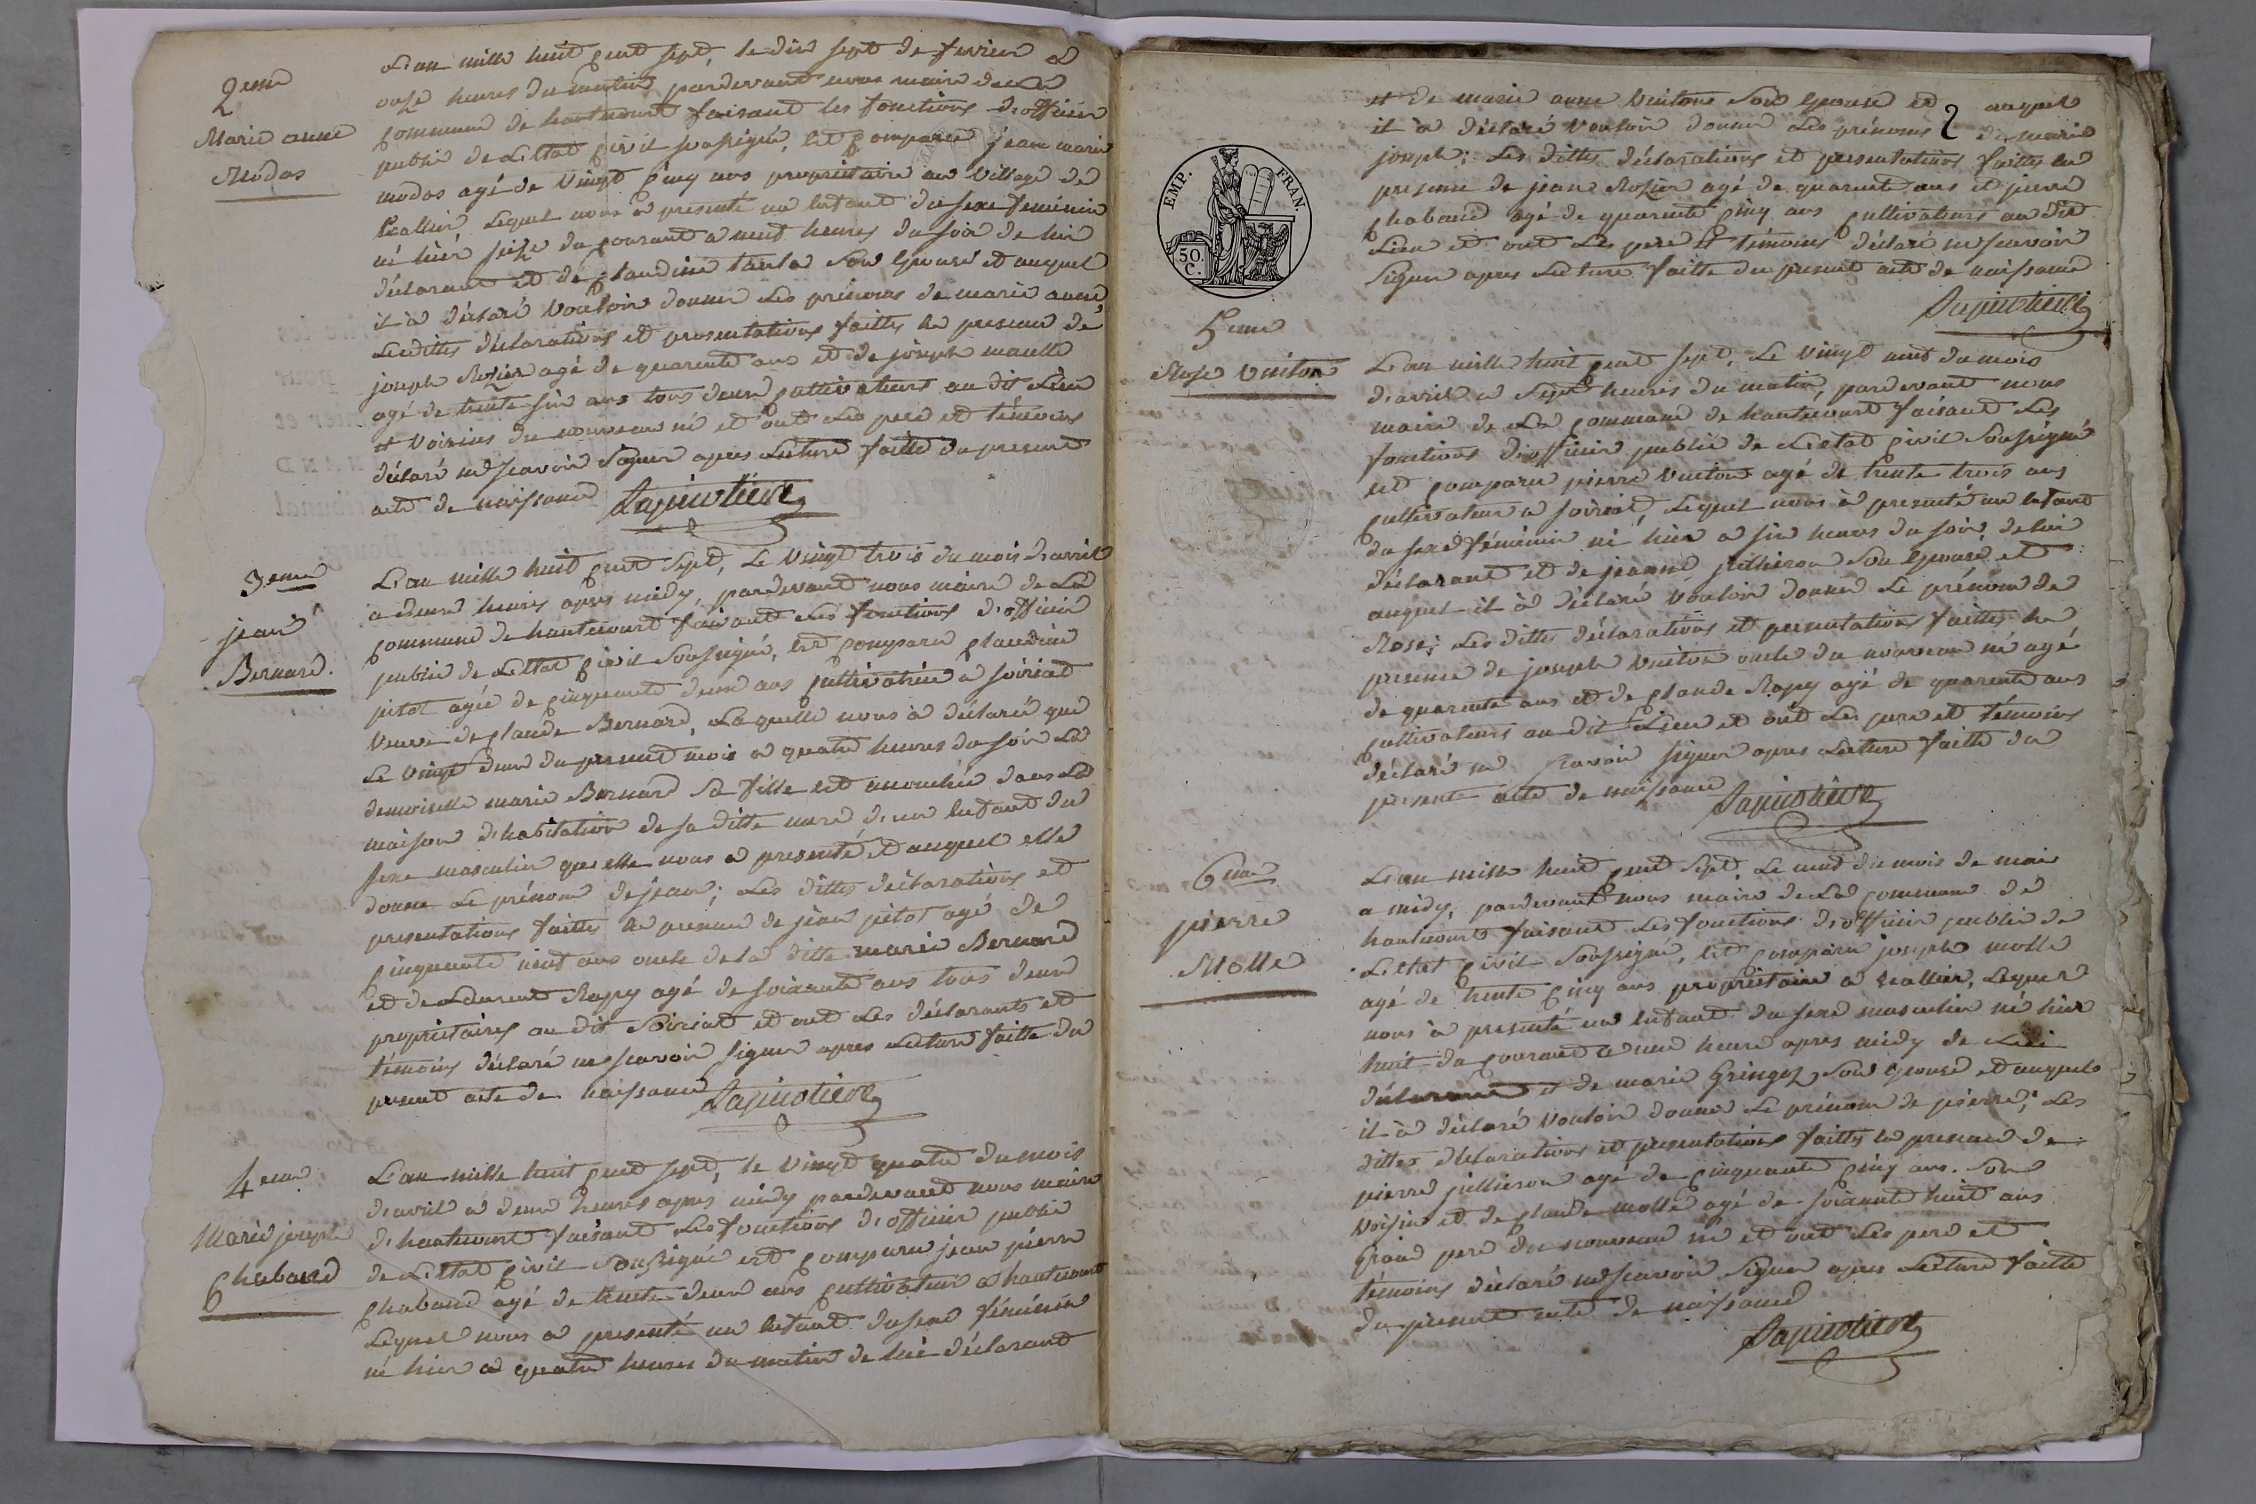 2eme
Marie anne
Modas
L'an mille huit cent sept, le dix sept de fevrier a
onze heures du matin pardevant nous maire de La
commune de hautecourt faisant les fonctions d'officier
public de L'Etat civil soussigné, est comparu jean marie
modas agé de vingt cinq ans propriétaire au village de
Lequel nous a presenté un Enfant du sexe feminin
né hier seize du courant a neuf heures du soir de lui
déclarant et de claudine son Epouse et auquel
il a déclaré vouloir donner Les prénoms de marie anne,
Lesdittes déclarations et presentations faittes En presence de
joseph Rozier agé de quarente ans et de joseph
agé de trente six ans tous deux cultivateurs au dit Lieu
et voisins du nouveau né et ont Les pere et témoins
déclaré ne scavoir signer apres Lecture faitte du present
acte de naissance
3eme
jean
Bernard.
L'an mille huit cent sept, Le vingt trois du mois d'avril
a deux heures apres midy, pardevant nous maire de La
commune de hautecourt faisant Les fonctions d'officier
public de L'Etat civil soussigné, est comparu claudine
pitot agée de cinquante deux ans cultivatrice a soiriat
veuve de claude Bernard, Laquelle nous a déclaré que
Le vingt deux du present mois a quatre heures du soir La
demoiselle marie Bernard sa fille est accouchée dans La
maison d'habitation de sa ditte mere d'un Enfant du
sexe masculin qu'elle nous a presenté et auquel elle
donne Le prénom de jean; Les dittes déclarations et
presentations faittes En presence de jean pitot agé de
cinquante neuf ans oncle de la ditte marie Bernard
et de Laurent Rapy agé de soixante ans tous deux
propriétaires au dit Soiriat et ont Les déclarants et
témoins déclaré ne scavoir signer apres Lecture faitte du
present acte de naissance
4eme
Marie joseph
Chaband
L'an mille huit cent sept, le vingt quatre du mois
d'avril a deux heures apres midy pardevant nous maire
d'hautecourt faisant Les fonctions d'officier public
de L'Etat civil soussigné est comparu jean pierre
chaband agé de trente deux ans cultivateur a hautecourt
Lequel nous a presenté un Enfant du sexe féminin
né hier a quatre heures du matin de lui déclarant
2
et de marie anne Vuiton son Epouse et auquel
il a déclaré vouloir donner Les prénoms de marie
joseph; Les dittes déclarations et presentations faittes en
presence de jean Rozier agé de quarente ans et pierre
chaband agé de quarente cinq ans cultivateurs au dit
Lieu et ont Les pere et témoins déclaré ne scavoir
signer apres Lecture faitte du present acte de naissance
EMP. FRAN.
50.
C.
5eme
Rose Vuiton
L'an mille huit cent sept, Le vingt neuf du mois
d'avril a sept heures du matin, pardevant nous
maire de La commune de hautecourt faisant Les
fonctions d'officier public de L'etat civil soussigné
est comparu pierre vuiton agé de trente trois ans
cultivateur a soiriat, Lequel nous a presenté un Enfant
du sexe féminin né hier a six heures du soir, de lui
déclarant et de jeanne son Epouse et
auquel il a déclaré vouloir donner Le prénom de
Rose; Les dittes déclarations et presentations faittes En
presence de joseph vuiton oncle du nouveau né agé
de quarente ans et de claude Rapy agé de quarente ans
cultivateurs au dit Lieu et ont Les pere et témoins
déclaré ne scavoir signer apres Lecture faitte du
present acte de naissance
6eme
pierre
Molle
L'an mille huit cent sept, Le neuf du mois de mai
a midy, pardevant nous maire de La commune de
hautecourt faisant Les fonctions d'officier public de
L'Etat civil soussigné, est comparu joseph molle
agé de trente cinq ans propriétaire a Lequel
nous a presenté un Enfant du sexe masculin né hier
huit du courant a une heure apres midy de Lui
déclarant et de marie Gringoz son Epouse et auquel
il a déclaré vouloir donner Le prénom de pierre; Les
dittes déclarations et presentations faittes en presence de
pierre agé de cinquante cinq ans son
voisin et de claude molle agé de soixante huit ans
Grand pere du nouveau né et ont Les pere et
témoins déclaré ne scavoir signer apres Lecture faitte
du present acte de naissance